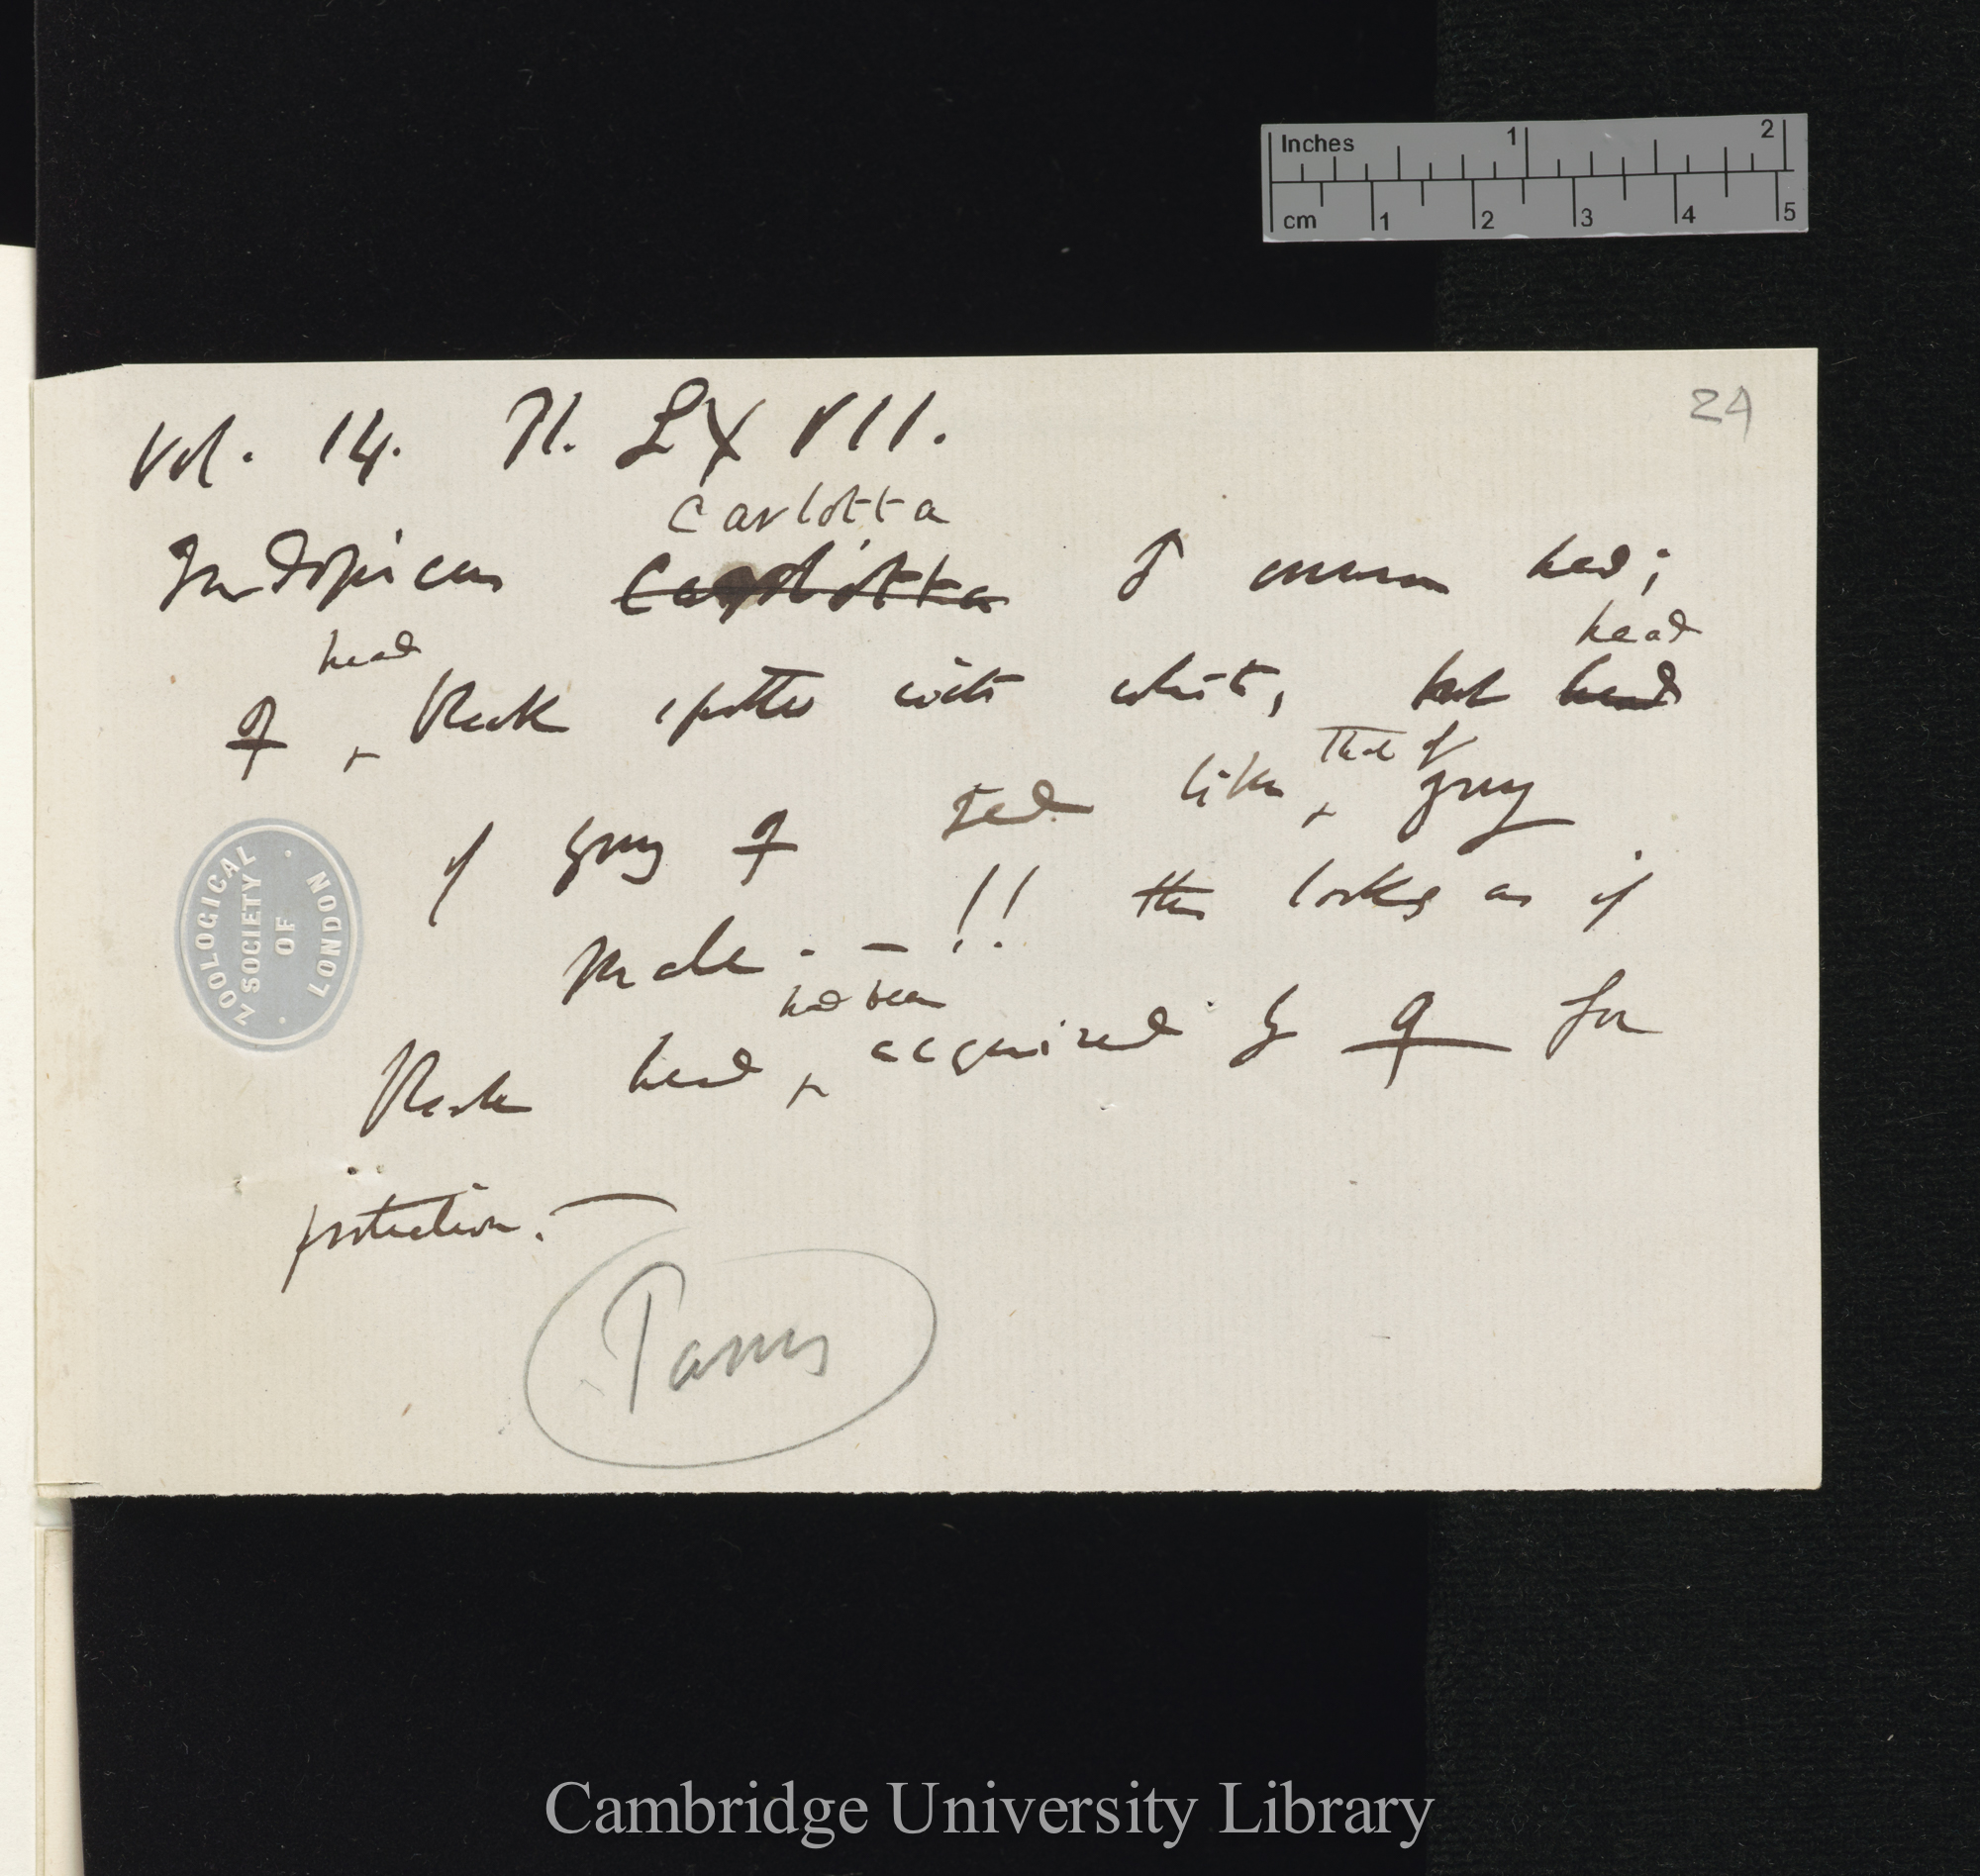 Inches 1 2
cm 1 2 3 4 5
24
Vol. 14. Pl. LXVII.
Carlotta
Indopicus Carlotta ♂ crimson head;
head head
♀ ^ Black spotted with white, but head
that of
of young ♀ red like ^ young
male. — !! this looks as if
had been
Black head ^ acquired by ♀ for
protection. —
ZOOLOGICAL SOCIETY OF LONDON
Cambridge University Library